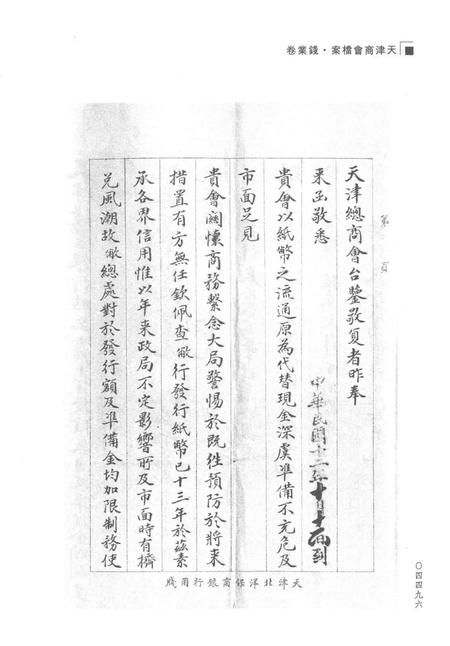 天津商會檔案·錢業卷
第 頁
天津總商會台鑒敬复者昨奉
來函敬悉
中華民國十二年十月十一日到
貴會以紙幣之流通原為代替現金深虞準備不充危及
市面足見
貴會關懷商務繫念大局警惕於既往預防於將來
措置有方無任欽佩查敝行發行紙幣已十三年於茲素
承各界信用惟以年來政局不定影響所及市面時有擠
兌風潮故敝總處對於發行額及準備金均加限制務使
天津北洋保商銀行用牋
〇四四九六